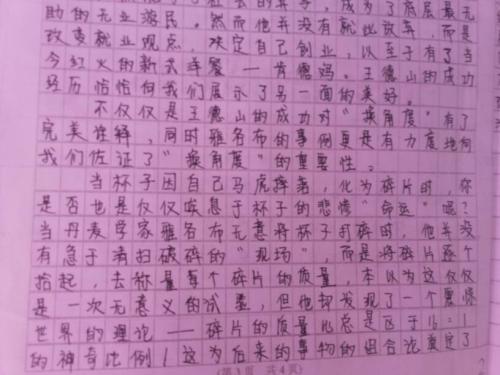 助的无业游民。然而他并没有就此放弃，而是
改变就业观点，决定自己创业，以至于有了当
今红火的新式洋餐——肯德妈。王德山的成功
经历恰恰向我们展示了另一面的美好。
不仅仅是王德山的成功对"换角度"有了
完美诠释，同时雅各布的事例更是有力度地向
我们佐证了"换角度"的重要性。
当杯子因自己马虎摔着，化为碎片时，你
是否也是仅仅唉息于杯子的悲惨"命运"呢？
当丹麦学家雅各布无意将杯子打碎时，他并没
有急于清扫破碎的"现场"，而是将碎片逐个
拾起，去称量每个碎片的质量，本以为这仅仅
是一次无意义的试量，但他却发现了一个震惊
世界的理论——碎片的质量比总是区于16=1
的神奇比例！这为后来的事物的组合论奠定了
（第3页 共4页）